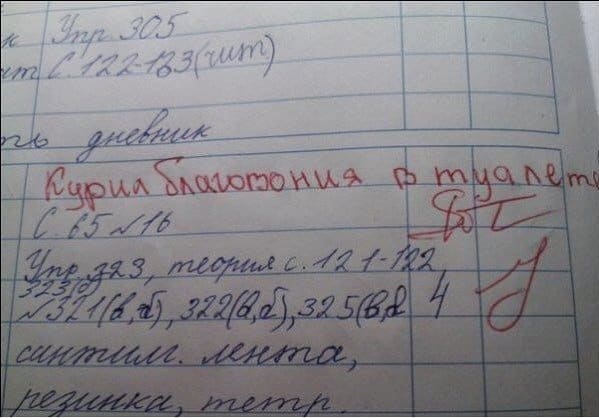 к Упр 305
ит С. 122-123(чит)
ть дневник
Курил благовония в туалете
С. 65 №16
Упр. 323, теория с. 121-122,
323(б)
№321(в,б), 322(в,б), 325(в,б 4
сантим. лента,
резинка, тетр.